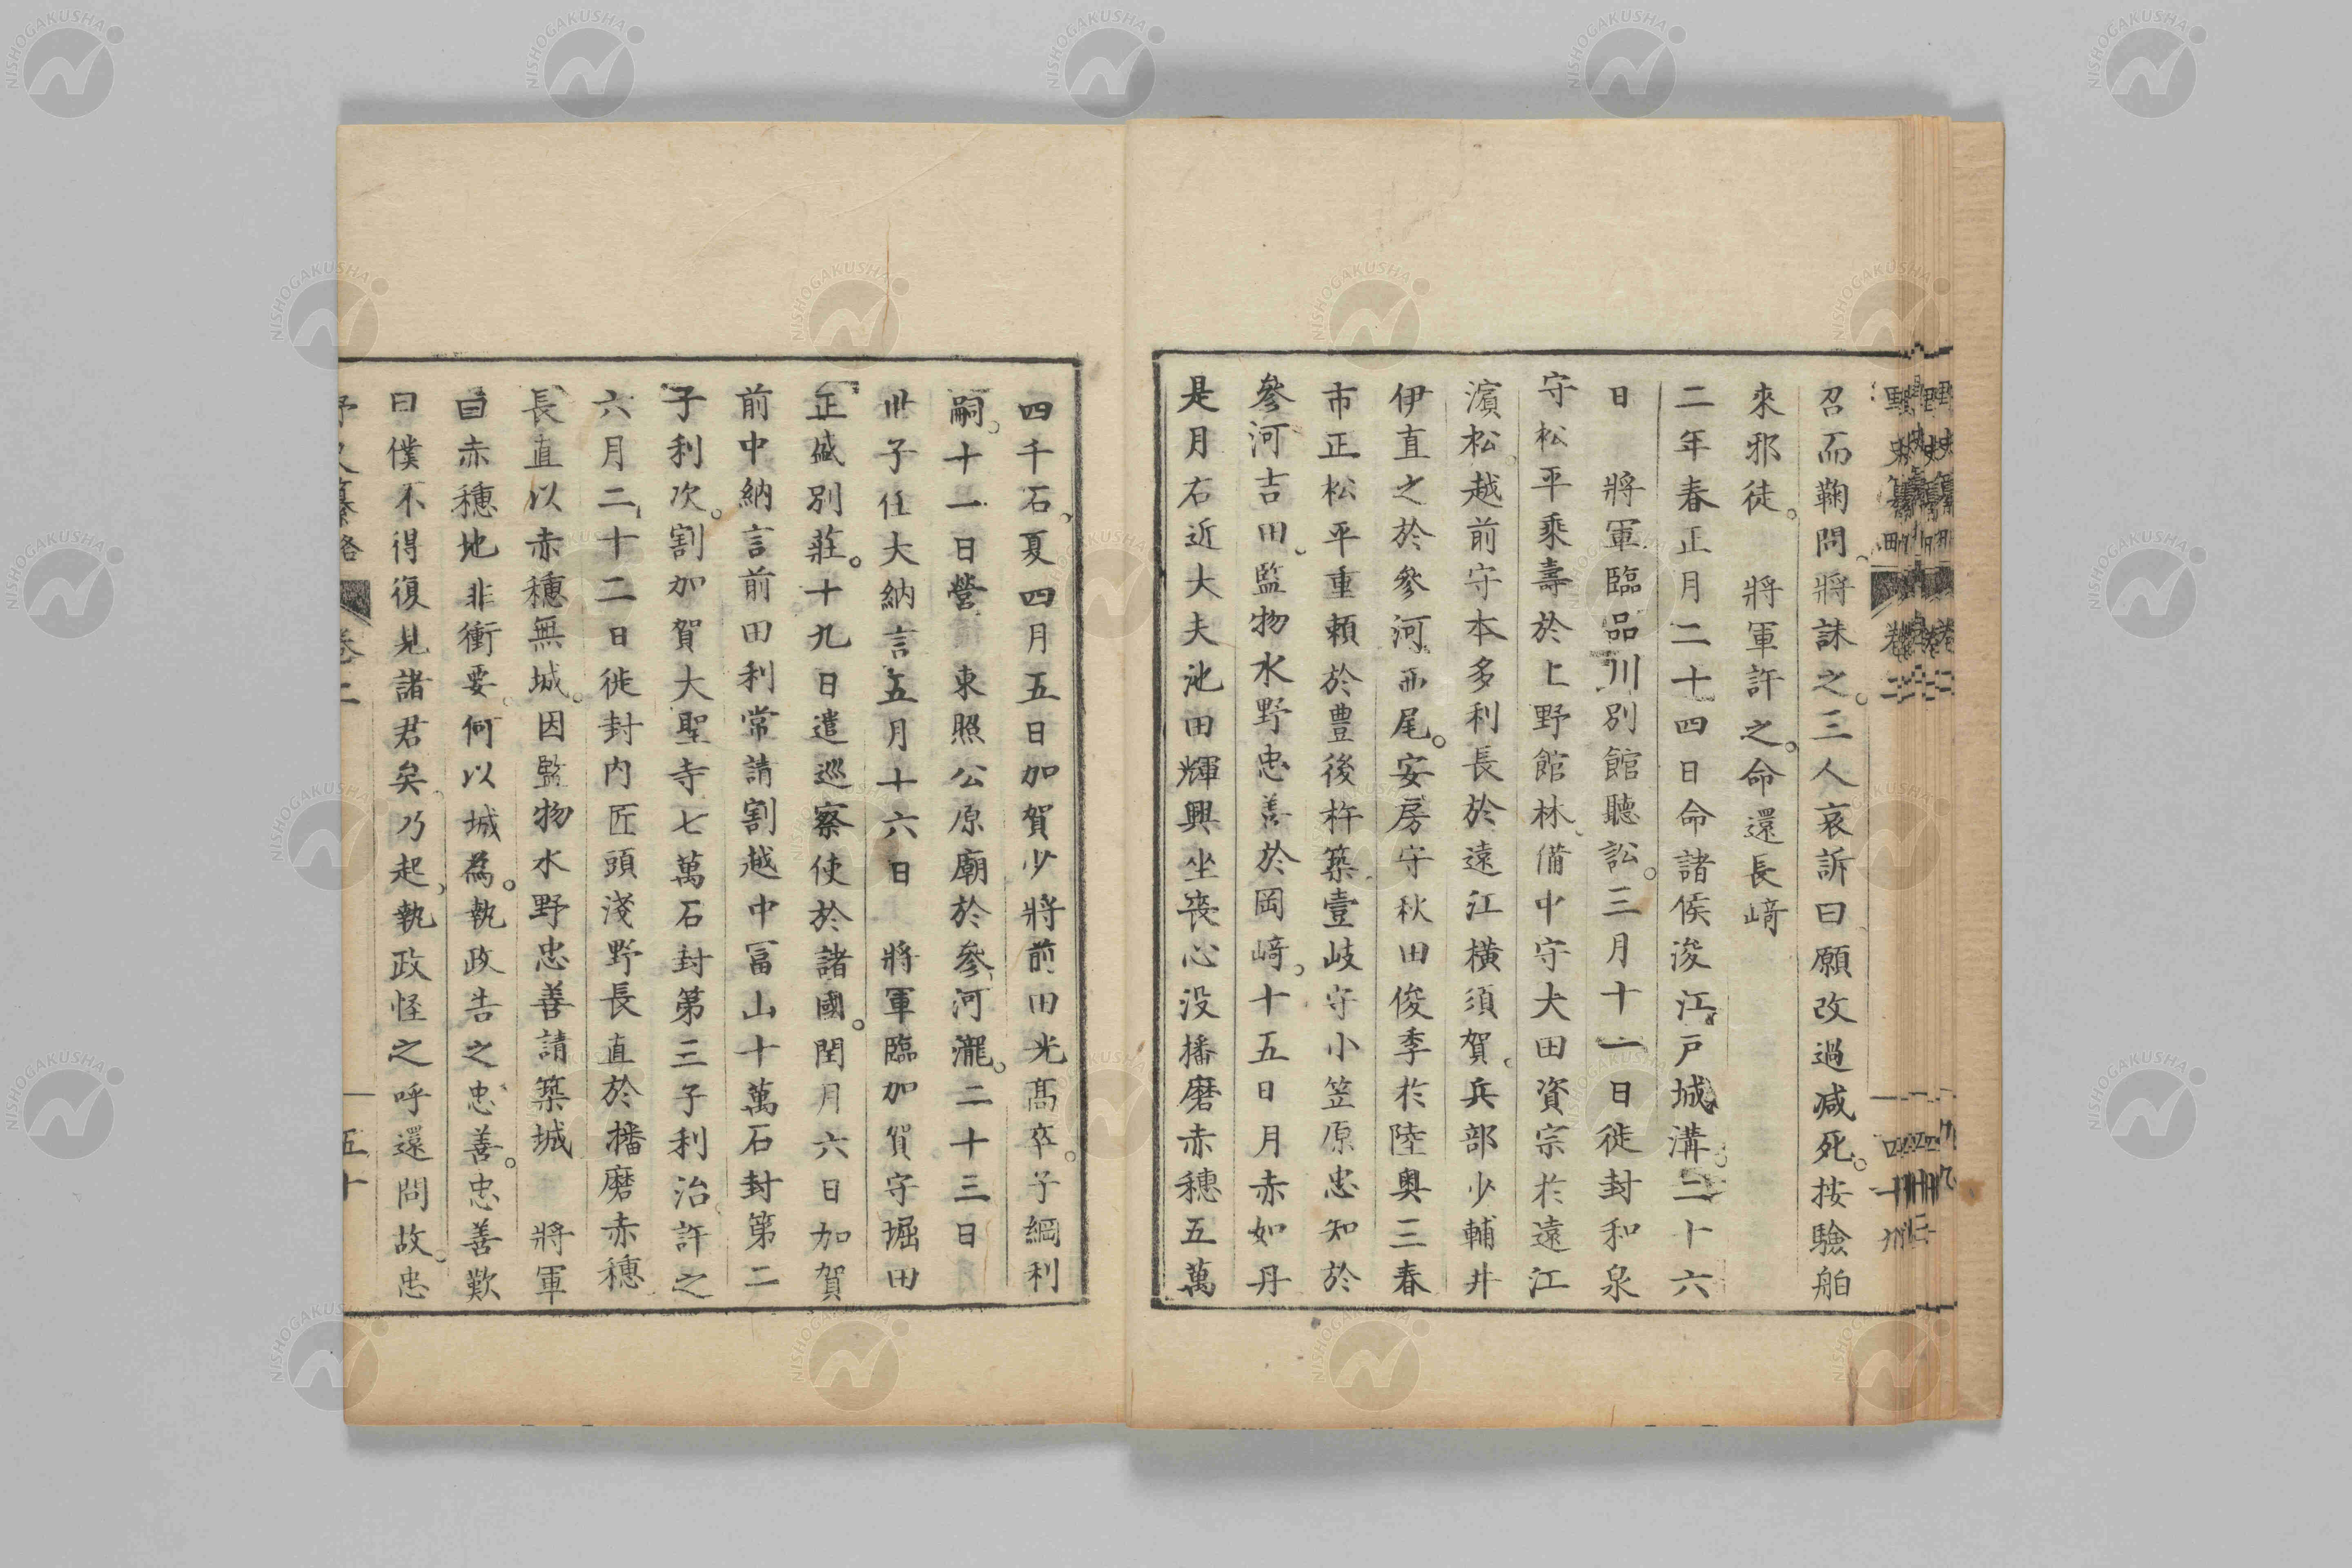 召而鞠問、將誅之。三人哀訴曰願改過减死。按驗舶
來邪徒。 將軍許之。命還長﨑
二年春正月二十四日命諸侯浚江戸城溝。二十六
日 將軍臨品川別館聽訟。三月十一日徙封和泉
守松平乘壽於上野館林、備中守太田資宗於遠江
濱松、越前守本多利長於遠江橫須賀、兵部少輔井
伊直之於參河西尾。安房守秋田俊季於陸奥三春
市正松平重賴於豊後杵築壹岐守小笠原忠知於
參河吉田、監物水野忠善於岡﨑。十五日月赤如丹
是月右近大夫池田輝興坐喪心没播磨赤穗五萬
四千石、夏四月五日加賀少將前田光髙卒。子綱利
嗣。十一日營 東照公原廟於參河瀧。二十三日
世子任大納言五月十六日 將軍臨加賀守堀田
正盛別莊。十九日遣巡察使於諸國。閏月六日加賀
前中納言前田利常請割越中冨山十萬石封第二
子利次。割加賀大聖寺七萬石封第三子利治許之
六月二十二日徙封内匠頭淺野長直於播磨赤穗
長直以赤穗無城。因監物水野忠善請築城 將軍
曰赤穗地非衝要。何以城為。執政告之忠善。忠善歎
曰僕不得復見諸君矣、乃起、執政怪之呼還問故。忠
野史纂略 卷二 五十